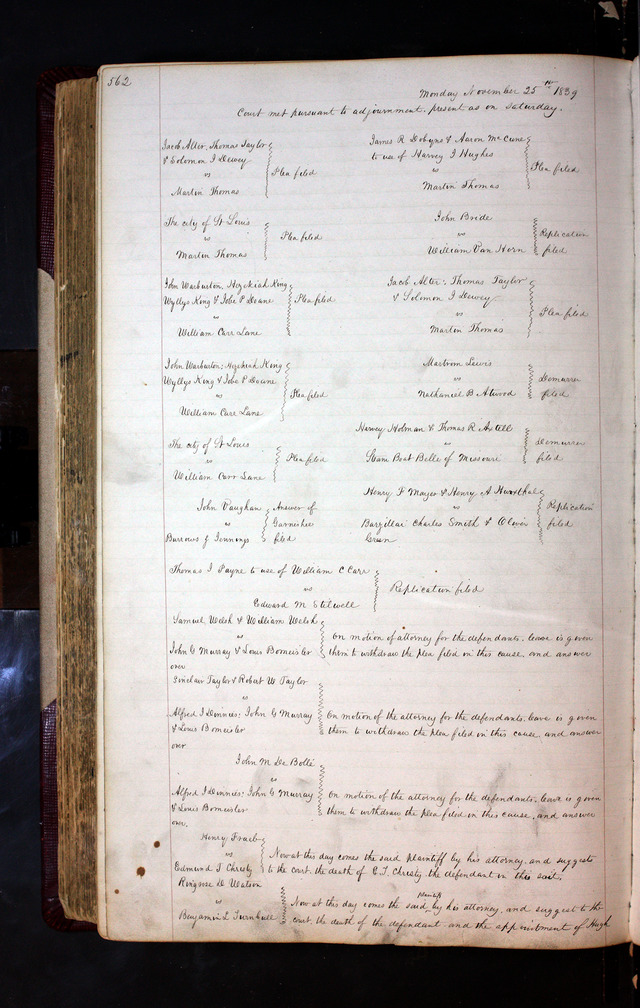 562
Monday November 25th 1839
Court met pursuant to adjournment. present as on Saturday.
Jacob Alter, Thomas Taylor
& Solomon J Dewey
vs
Martin Thomas
Plea filed
James R Dobyns & Aaron McCune
to use of Harvey J Hughes
vs
Martin Thomas
Plea filed
The city of St Louis
vs
Martin Thomas
Plea filed
John Bride
vs
William Van Horn
Replication
filed
John Warburton, Hezekiah King
Wyllys King & John P Doane
vs
William Carr Lane
Plea filed
Jacob Alter; Thomas Taylor
& Solomon J Dewey
vs
Martin Thomas
Plea filed
John Warburton; Hezekiah King
Wyllys King & John P Doane
vs
William Carr Lane
Plea filed
Martrom Lewis
vs
Nathaniel B. Atwood
Demurrer
filed
The city of St Louis
vs
William Carr Lane
Plea filed
Harvey Holman & Thomas R Axtell
vs
Steam Boat Belle of Missouri
Demurrer
filed
John Vaughan
vs
Burrows & Jennings
Answer of
Garnishee
filed
Henry F Mayer & Henry A Hurxthal
vs
Barzillai Charles Smith & Oliver
Green
Replication
filed
Thomas J Payne to use of William C Carr
vs
Edward M Stilwell
Replication filed
Samuel Welsh & William Welsh
vs
John G Murray & Louis Bomeisler
over
On motion of attorney for the defendants. leave is given
them to withdraw the plea filed in this cause, and answer
Sinclair Taylor & Robert W Taylor
vs
Alfred J Dinnies; John G Murray
& Louis Bomeisler
over
On motion of the attorney for the defendants. leave is given
them to withdraw the plea filed in this cause, and answer
John M De Bolle
vs
Alfred J Dinnies; John G Murray
& Louis Bomeisler
over.
On motion of the attorney for the defendants. leave is given
them to withdraw the plea filed in this cause, and answer
Henry Fraeb
vs
Edmund T Christy
Now at this day comes the said plaintiff by his attorney. and suggests
to the court. the death of E. T. Christy. the defendant in this suit.
Ringrose D Watson
vs
Benjamin L Turnbull
Now at this day comes the said plaintiff by his attorney. and suggest to the
court. the death of the defendant. and the appointment of Hugh